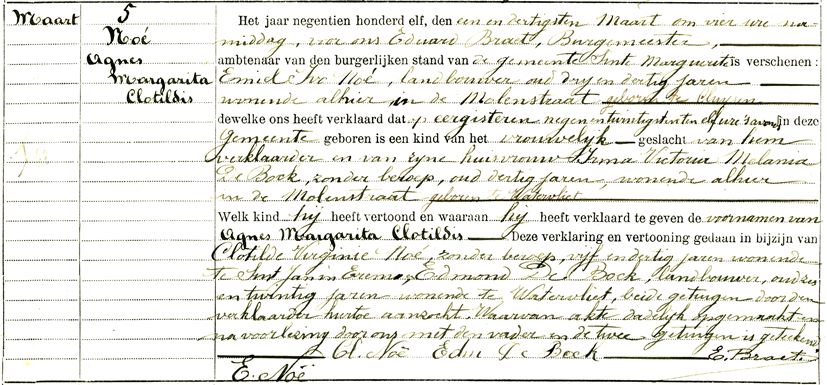 Maart
5
Noé
Agnes
Margarita
Clotildis
Het jaar negentien honderd elf, den een en dertigsten Maart om vier ure na-
middag, voor ons Eduard Braet, Burgemeester,
ambtenaar van den burgerlijken stand van de gemeente Sint Margueritis verschenen:
Emiel Ivo Noé, landbouwer oud dry en dertig jaren
wonende alhier in de Molenstraat geboren te Cluysen
dewelke ons heeft verklaard dat op eergisteren negenentwintigsten elf ure 's avonds in deze
Gemeente geboren is een kind van het vrouwelyk geslacht van hem
verklaarder en van zyne huisvrouw Irma Victoria Melania
De Bock, zonder beroep, oud dertig jaren, wonende alhier
in de Molenstraat geboren te Watervliet
Welk kind hij heeft vertoond en waaraan hij heeft verklaard te geven de voornamen van
Agnes Margarita Clotildis Deze verklaring en vertooning gedaan in bijzijn van
Clotilde Virginie Noé, zonder beroep, vyf en dertig jaren wonende
te Sint Jan in Eremo, Edmond De Bock, landbouwer, oud zes
en twintig jaren wonende te Watervliet, beide getuigen door den
verklaarder hiertoe aanzocht. Waarvan akte dadelyk opgemaakt en
na voorlezing door ons met den vader en de twee getuigen is geteekend
Cl. Noé Edm De Bock E. Braet
E. Noé